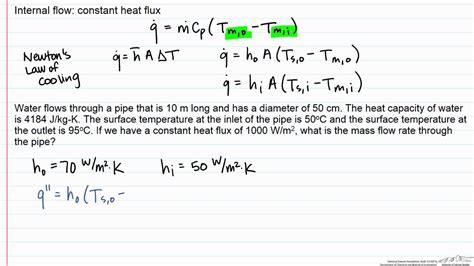 Internal flow: constant heat flux
q̇ = ṁ Cp ( Tm,o − Tm,i )
Newton's
Law of
cooling
q̇ = h̄ A ΔT
q̇ = ho A ( Ts,o − Tm,o )
q̇ = hi A ( Ts,i − Tm,i )
Water flows through a pipe that is 10 m long and has a diameter of 50 cm. The heat capacity of
water is 4184 J/kg-K. The surface temperature at the inlet of the pipe is 50°C and the surface temperature
at the outlet is 95°C. If we have a constant heat flux of 1000 W/m², what is the mass flow rate through
the pipe?
ho = 70 W/m²·K hi = 50 W/m²·K
q" = ho ( Ts,o −